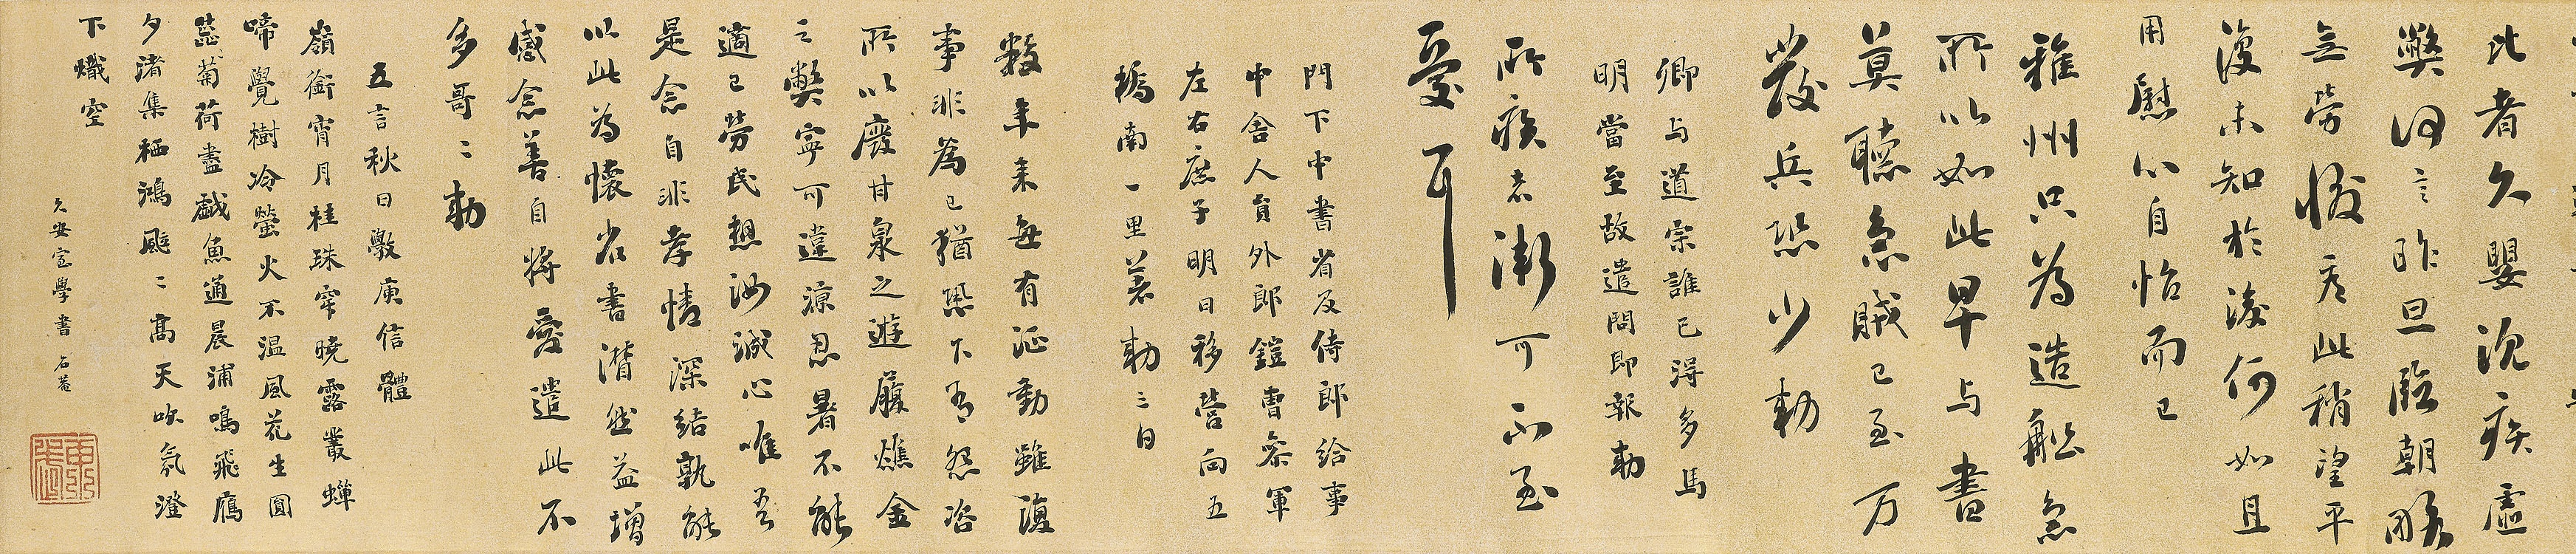 比者久嬰沈疾虛
弊何言昨旦臨朝暇
無勞後看此稍望平
復未知於後何如且
用慰心自怡而已
雅州只為造船急
所以如此早与書
莫聽急賊已至万
發兵恐少勅
卿与道宗誰已得多馬
明當至故遣問即報勅
所疾者漸可不至
憂耳
門下中書省及侍郎給事
中舍人員外郎鎧曹參軍
左右庶子明日移營向五
橋南一里著勅三日
數年來每有涎動雖復
事非為己猶恐下有怨咨
所以廢甘泉之遊履燋金
之弊寧可違涼忍暑不能
適己勞民想汝誠心唯吾
是念自非孝情深結孰能
以此為懷省書潸然益增
感念善自將愛遣此不
多哥〻勅
五言秋日斆庾信體
嶺銜宵月桂珠穿曉露叢蟬
啼覺樹冷螢火不温風花生圓
蕊菊荷盡戲魚通晨浦鳴飛鴈
夕渚集栖鴻颸〻高天吹氛澄
下熾空
久安室學書 石菴